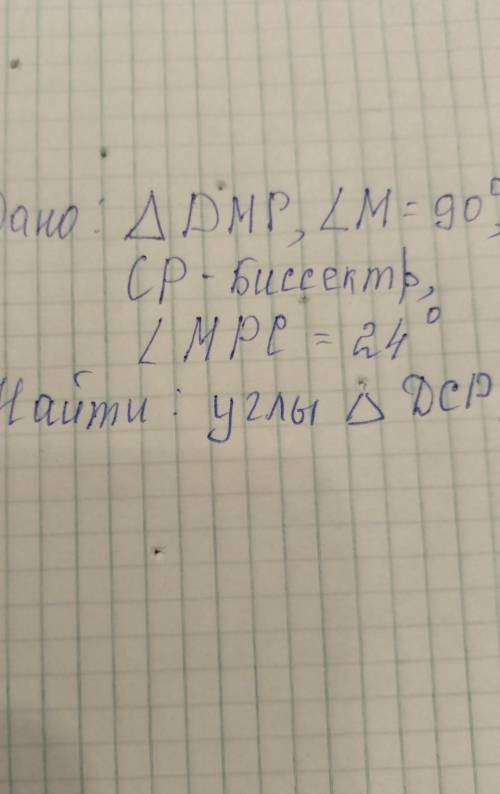 Дано: △ DMP, ∠M = 90°,
CP - биссектр,
∠MPC = 24°
Найти: углы △ DCP